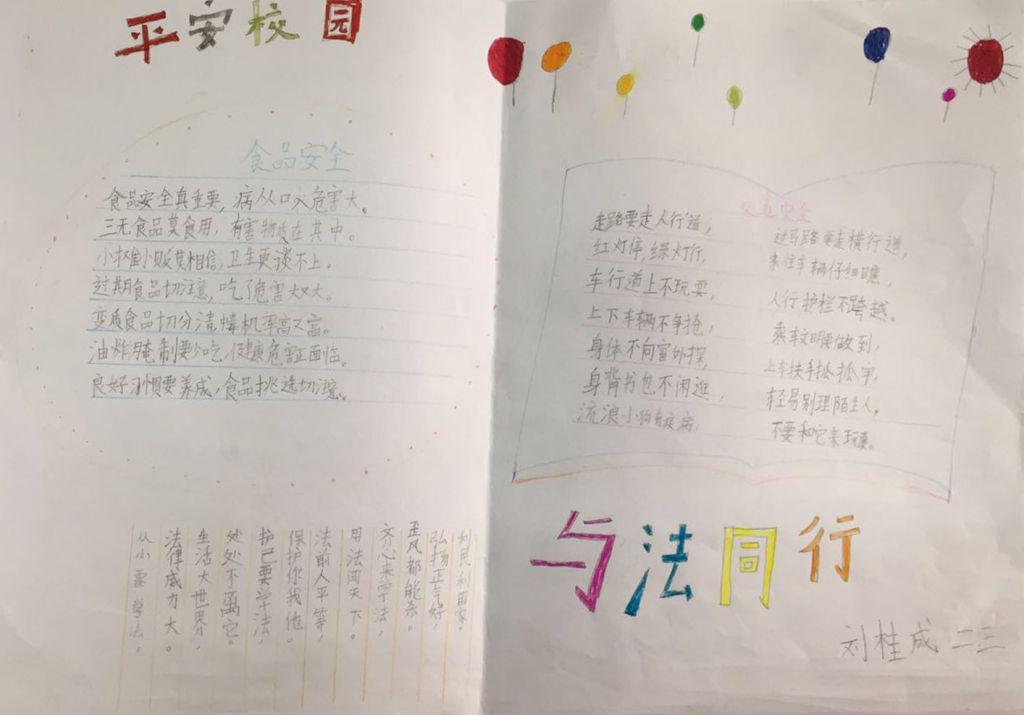 平安校园
食品安全
食品安全真重要，病从口入危害大。
三无食品莫食用，有害物质在其中。
小摊小贩莫相信，卫生更谈不上。
过期食品切注意，吃了危害大又大。
变质食品切分清，率高又高。
油炸腌制要少吃，健康危害正面临。
良好习惯要养成，食品挑选切注意。
从小要学法，
法律威力大。
生活大世界，
处处不离它。
护己要学法，
保护你我他。
法前人平等，
用法闯天下。
齐心来学法，
歪风都能杀。
弘扬正气好，
利民利国家。
交通安全
走路要走人行道，
过马路要走横行道，
红灯停，绿灯行，
来往车辆仔细瞧，
车行道上不玩耍，
人行护栏不跨越。
上下车辆不争抢，
乘车文明要做到，
身体不向窗外探，
上车扶手抓抓牢，
身背书包不闲逛，
轻易别理陌生人，
流浪小狗有疾病，
不要和它来玩耍。
与法同行
刘桂成 二三